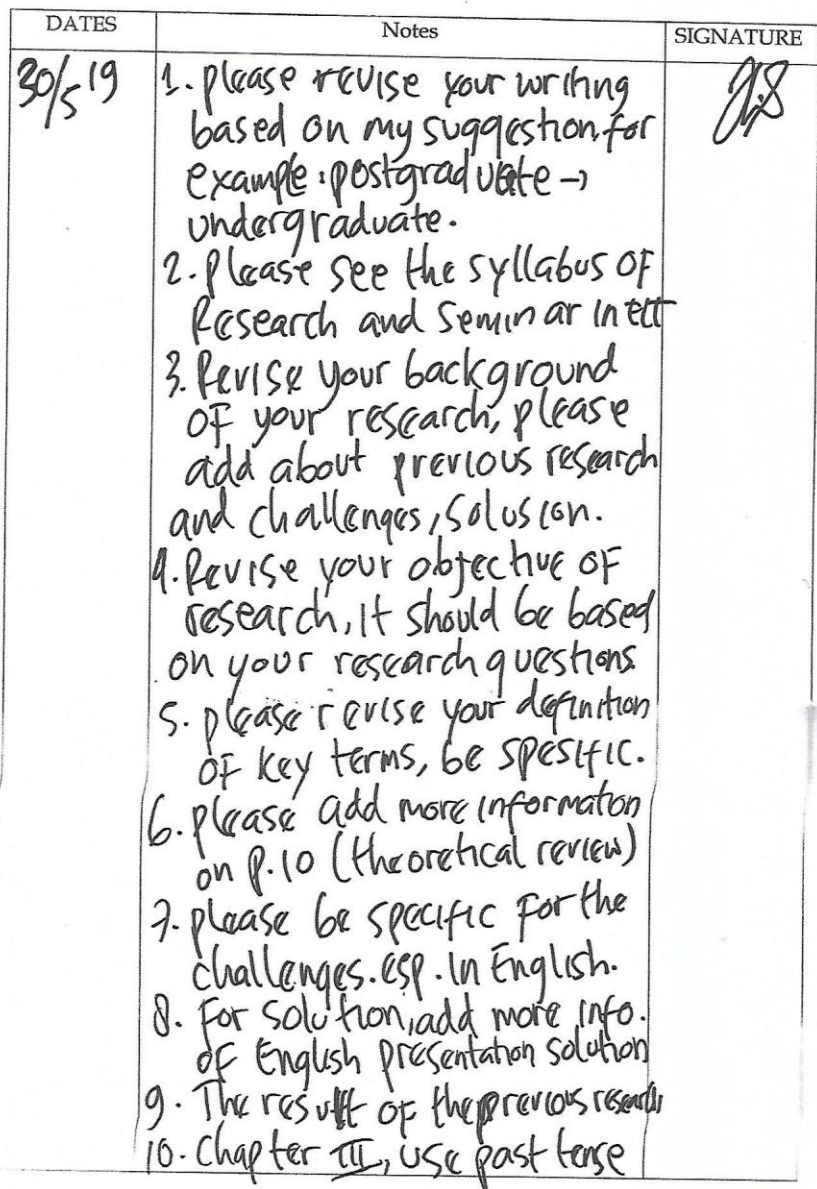 DATES Notes SIGNATURE
30/5 19 1. please revise your writing
based on my suggestion, for
example: postgraduate →
undergraduate.
2. Please see the syllabus of
Research and Seminar in ELT
3. Revise your background
of your research, please
add about previous research
and challenges, solusion.
4. Revise your objective of
research, it should be based
on your research questions
5. please revise your definition
of key terms, be spesific.
6. please add more information
on p.10 (theoretical review)
7. please be specific for the
challenges. esp. in English.
8. For solution, add more info.
of English presentation solution
9. The result of the previous research
10. Chapter III, use past tense